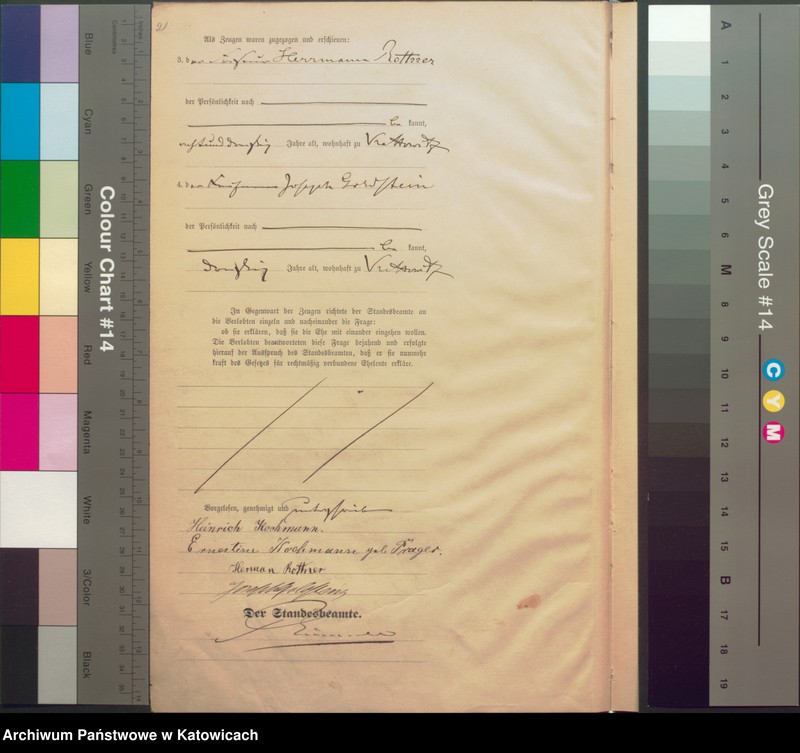 Als Zeugen waren zugezogen und erschienen:
3. der Herrmann Rottner
der Persönlichkeit nach
be kannt,
Jahre alt, wohnhaft zu Kattowitz
4. der Kaufmann Joseph Goldstein
der Persönlichkeit nach
be kannt,
dreißig Jahre alt, wohnhaft zu Kattowitz
In Gegenwart der Zeugen richtete der Standesbeamte an
die Verlobten einzeln und nacheinander die Frage:
ob sie erklären, daß sie die Ehe mit einander eingehen wollen.
Die Verlobten beantworteten diese Frage bejahend und erfolgte
hierauf der Ausspruch des Standesbeamten, daß er sie nunmehr
kraft des Gesetzes für rechtmäßig verbundene Eheleute erkläre.
Vorgelesen, genehmigt und unterschrieben
Heinrich Kochmann.
Ernestine Kochmann geb. Präger.
Herman Rottner
Der Standesbeamte.
Colour Chart #14
Blue
Cyan
Green
Yellow
Red
Magenta
White
3/Color
Black
Centimetres
Inches
Grey Scale #14
C
Y
M
A
1
2
3
4
5
6
M
8
9
10
11
12
13
14
15
B
17
18
19
Archiwum Państwowe w Katowicach